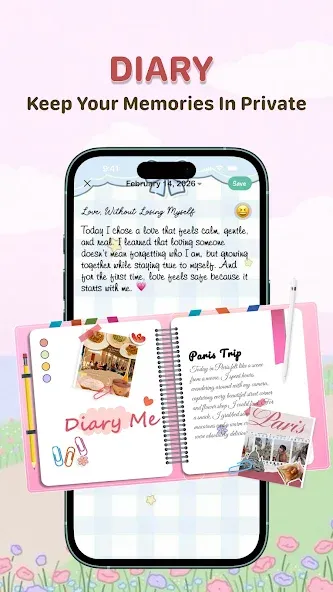 DIARY
Keep Your Memories In Private
9:41
February 14, 2026
Save
Love, Without Losing Myself
Today I chose a love that feels calm, gentle,
and real. I learned that loving someone
doesn't mean forgetting who I am, but growing
together while staying true to myself. And
for the first time, love feels safe because it
starts with me.
Diary Me
Paris Trip
Today in Paris felt like a scene
from a movie. I spent hours
wandering around with my camera,
capturing every beautiful street corner
and flower shop. I
a snack, I grabbed
macarons
were absolutely
Paris